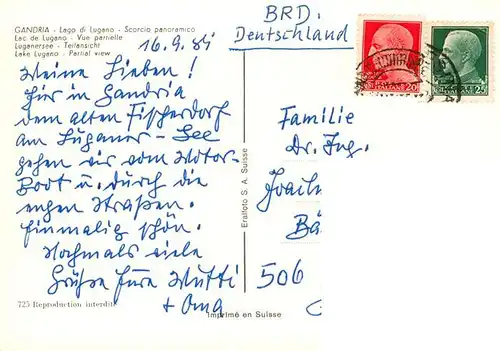 GANDRIA - Lago di Lugano - Scorcio panoramico
Lac de Lugano - Vue partielle
Luganersee - Teilansicht
Lake Lugano - Partial view
16.9.84
Meine Lieben!
Hier in Gandria
dem alten Fischerdorf
am Luganer-See
gehen wir vom Motor-
Boot u. durch die
engen Straßen.
Einmalig schön.
Nochmals viele
Grüße Eure Mutti
+ Oma
725 Reproduction interdite
Eralfoto S. A. Suisse
Imprimé en Suisse
BRD.
Deutschland
20
Familie
Dr. Ing.
506